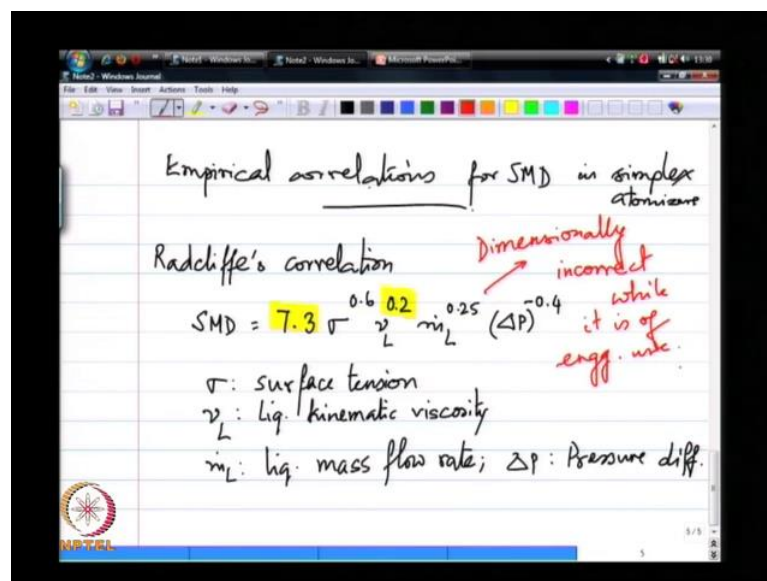 Note1 - Windows Jo... Note2 - Windows Jo... Microsoft PowerPoi... 13:38
Note2 - Windows Journal
File Edit View Insert Actions Tools Help
Empirical correlations for SMD in simplex
atomizers
Radcliffe's correlation
SMD = 7.3 σ^0.6 ν_L^0.2 ṁ_L^0.25 (ΔP)^-0.4
Dimensionally
incorrect
while
it is of
engg. use.
σ: surface tension
ν_L: liq. kinematic viscosity
ṁ_L: liq. mass flow rate; ΔP: Pressure diff.
NPTEL
5/5
5